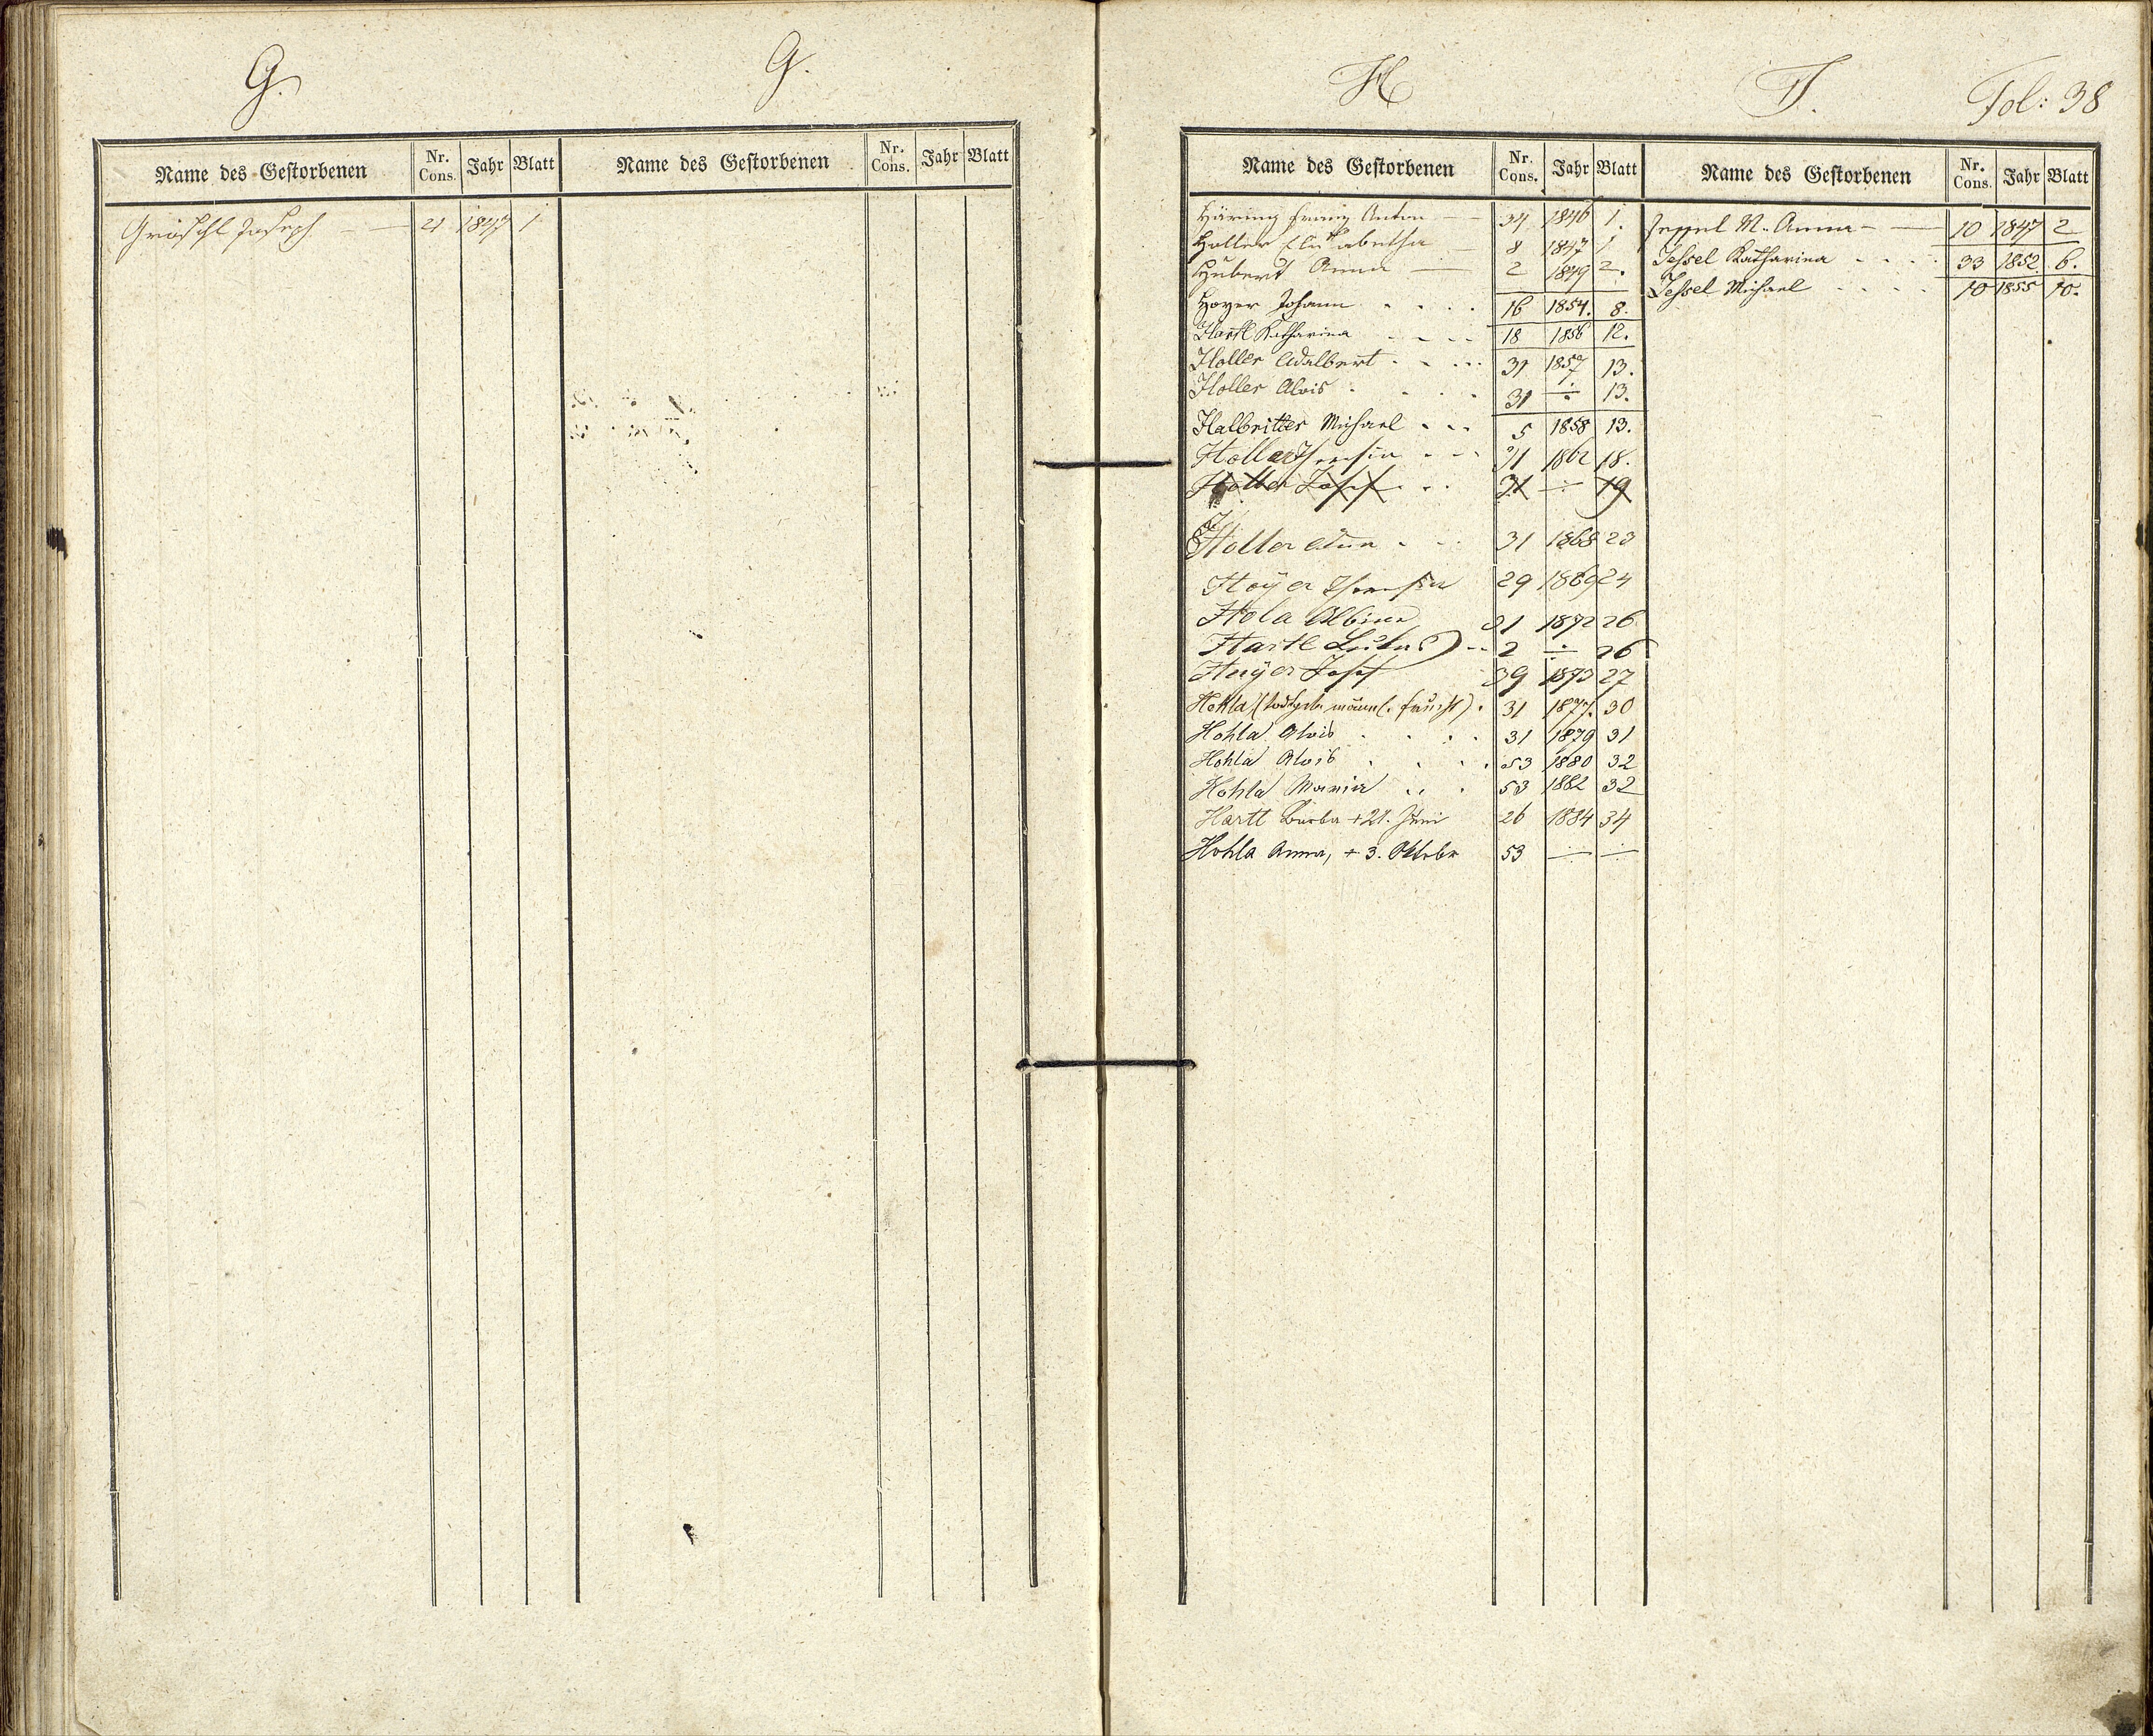 G.
G.
Name des Gestorbenen Nr. Cons. Jahr Blatt Name des Gestorbenen Nr. Cons. Jahr Blatt
Gröschl Joseph 21 1847 1
H
J.
Fol: 38
Name des Gestorbenen Nr. Cons. Jahr Blatt Name des Gestorbenen Nr. Cons. Jahr Blatt
Häring Franz Anton 34 1846 1.
Holler Elisabetha 8 1847 1
Hubert Anna 2 1849 2.
Hoyer Johann 16 1854. 8.
Hartl Katharina 18 1856 12.
Holler Adalbert 31 1857 13.
Holler Alois 31 ÷ 13.
Halbritter Michael 5 1858 13.
Holler Theresia 31 1862 18.
Holler Josef 31 ÷ 19
Holler Anna 31 1868 23
Hoÿer Theresia 29 1869 24
Hola Albina 31 1872 26
Hartl 2 ÷ 26
Hoÿer Josef 39 1873 27
Hohla (todtgeb. männl. Frucht) 31 1877. 30
Hohla Alois 31 1879 31
Hohla Alois 53 1880 32
Hohla Maria 53 1882 32
Hartl Barba +21. Juni 26 1884 34
Hohla Anna, + 3. Oktobr 53 ÷ ÷
Jessel M. Anna 10 1847 2
Jessel Katharina 33 1852. 6.
Jessel Michael 10 1855 10.